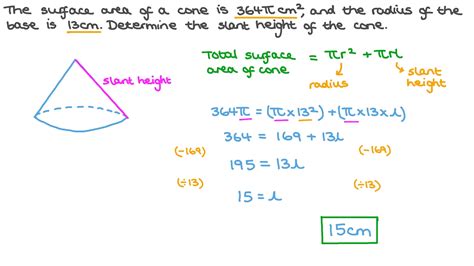 The surface area of a cone is 364πcm², and the radius of the
base is 13cm. Determine the slant height of the cone.
Total surface area of cone = πr² + πrl
radius
slant height
slant height
364π = (π×13²)+(π×13×l)
364 = 169 + 13l
(-169) (-169)
195 = 13l
(÷13) (÷13)
15 = l
15cm